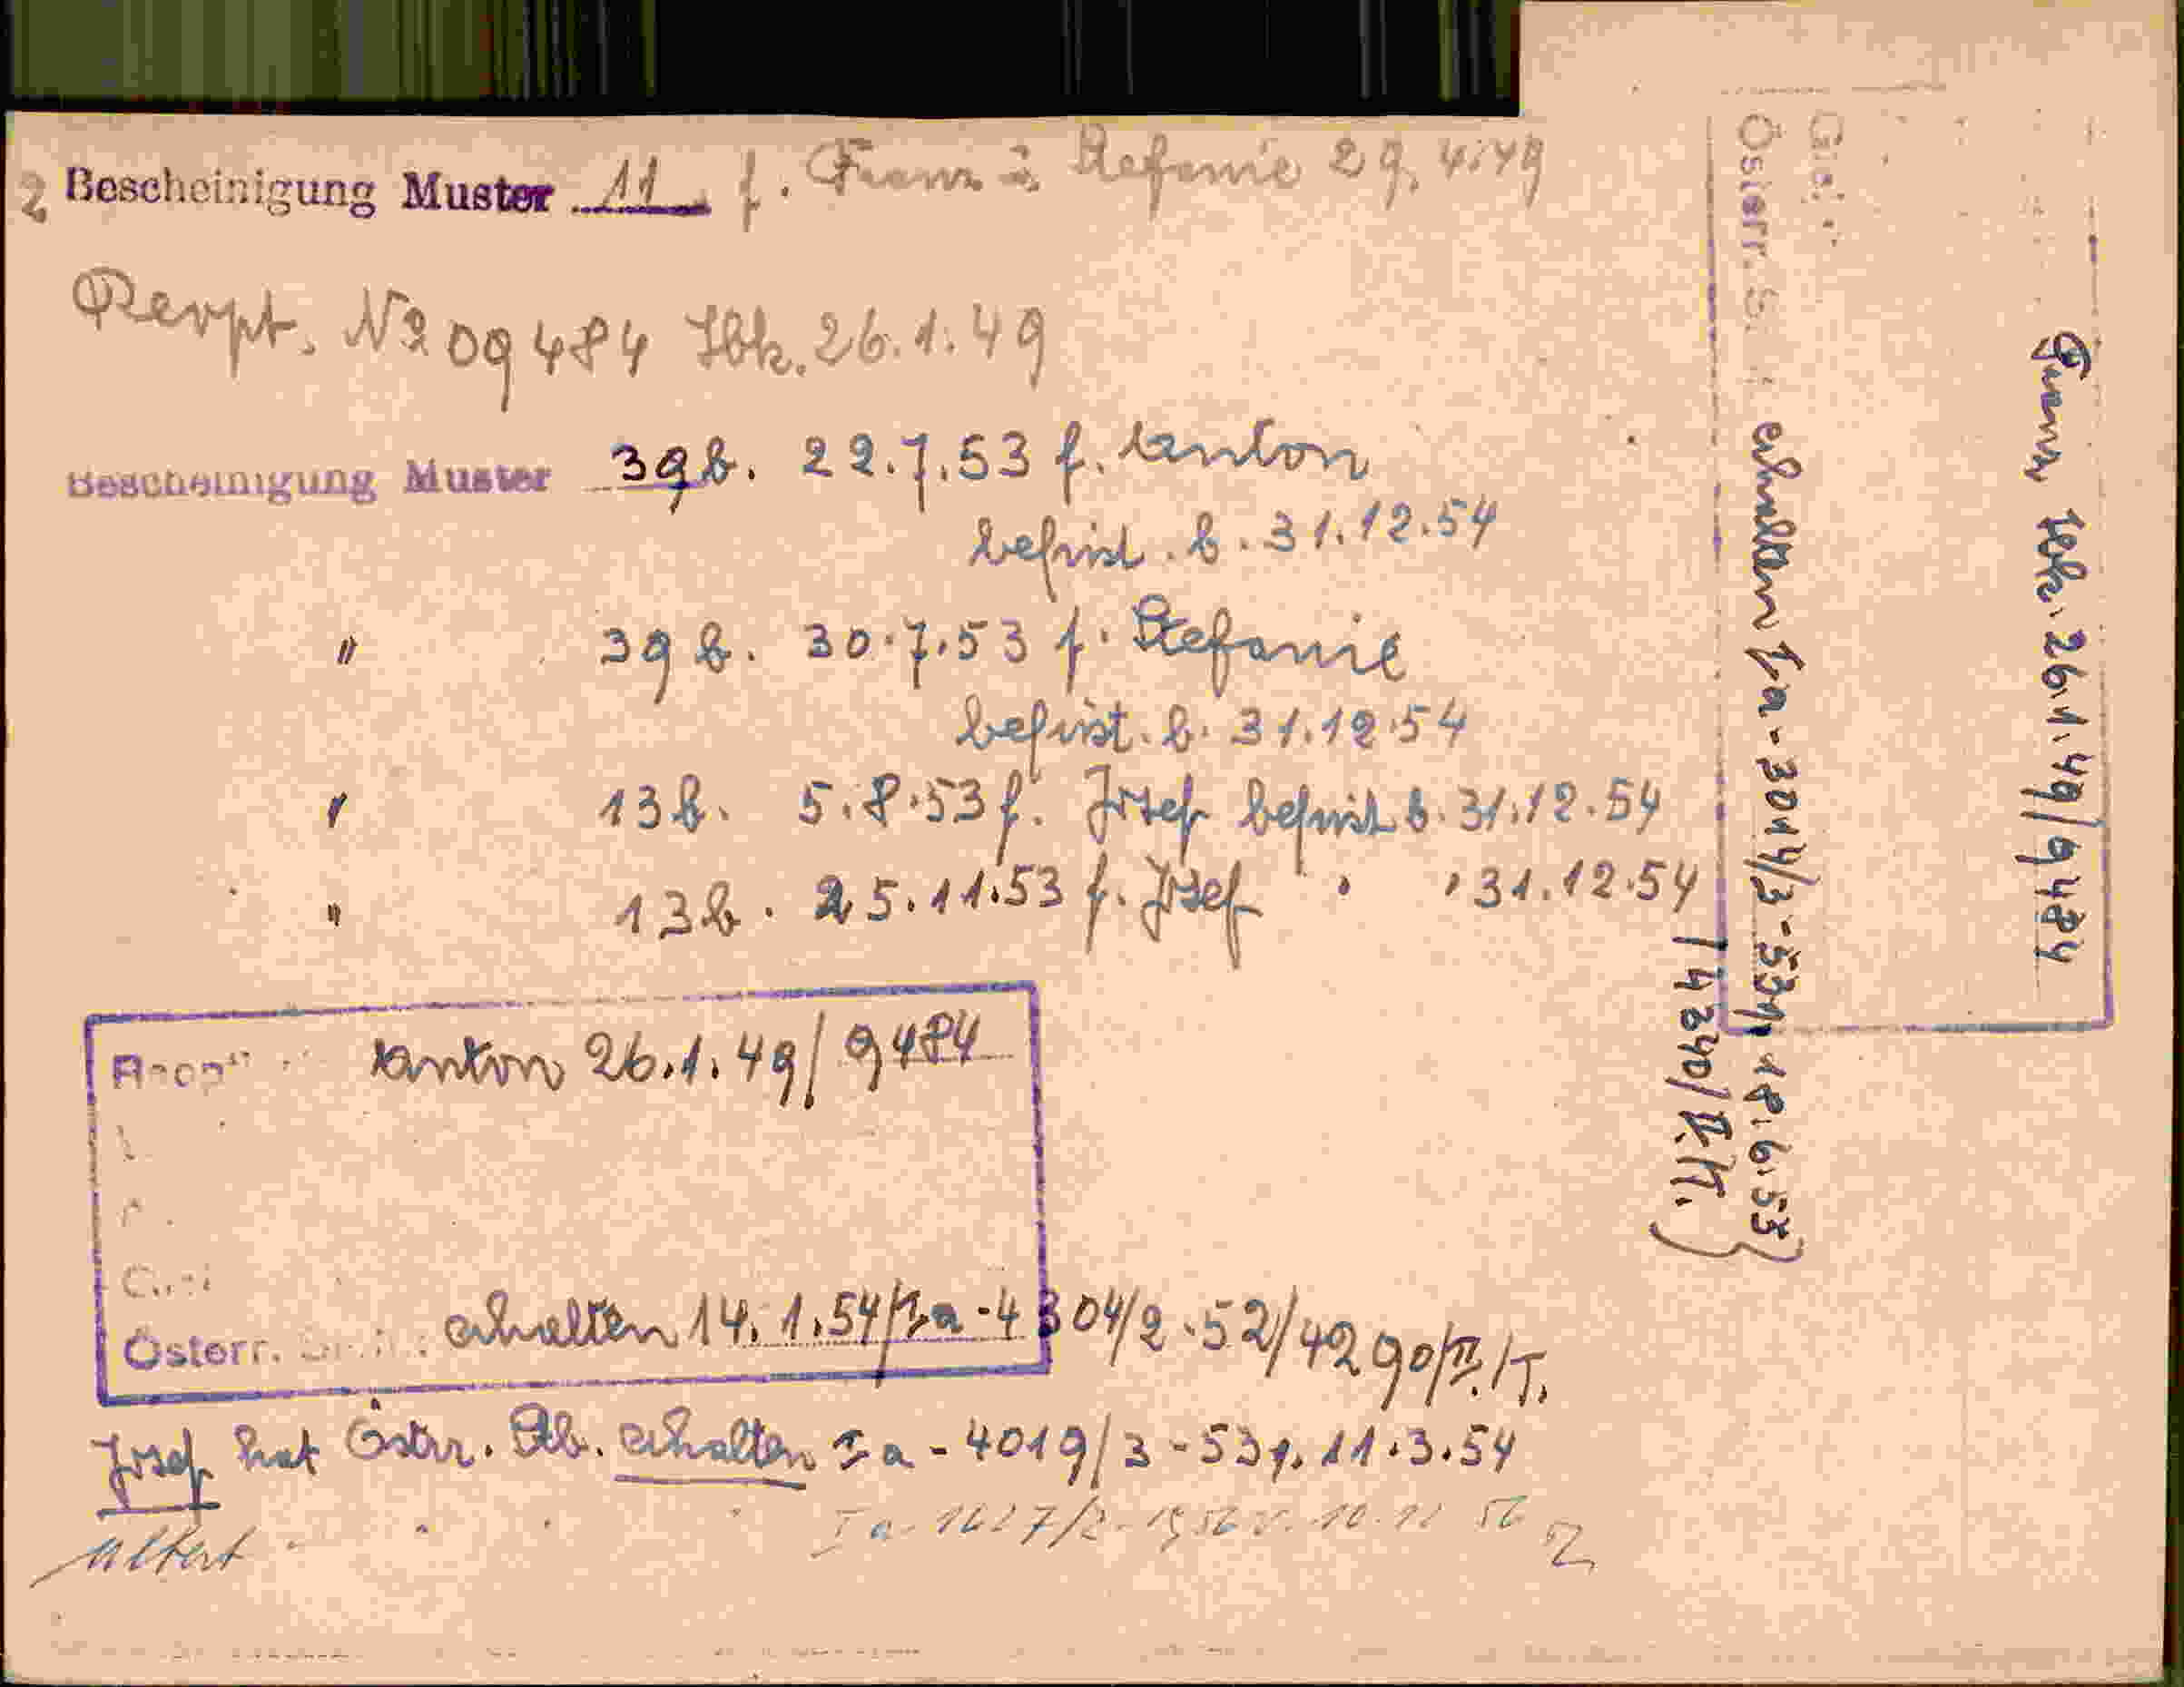 2 Bescheinigung Muster 11 f. Franz u. Stefanie 29.4.49
Rerpt. No 09484 Ibk. 26.1.49
Bescheinigung Muster 39b. 22.7.53 f. Anton
befrist. b. 31.12.54
" 39b. 30.7.53 f. Stefanie
befrist. b. 31.12.54
" 13b. 5.8.53 f. Josef befrist b. 31.12.54
" 13b. 25.11.53 f. Josef " " 31.12.54
Anton 26.1.49/9484
Österr. erhalten 14.1.54/Ia-4304/2-52/4290/II./T.
Josef hat Österr. Stb. erhalten Ia-4019/3-53 v. 11.3.54
Albert " " " " Ia-1627/2-1956 v. 10.12 56
Franz Ibk. 26.1.49/9484
Österr. S. erhalten Ia-3014/3-53 v. 18.6.53